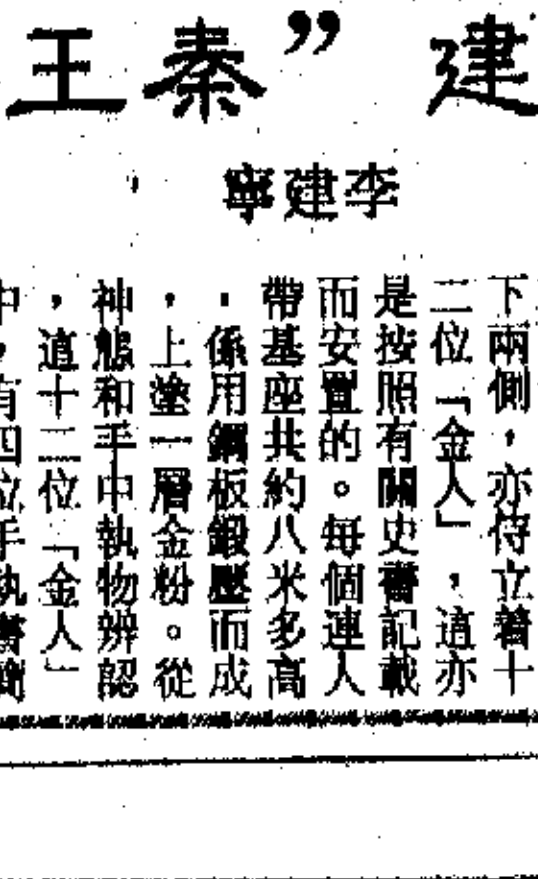 建”秦王
李建寧
下兩側，亦侍立着十
二位「金人」，這亦
是按照有關史書記載
而安置的。每個連人
帶基座共約八米多高
，係用鋼板鍛壓而成
，上塗一層金粉。從
神態和手中執物辨認
，這十二位「金人」
中，有四位手執書簡